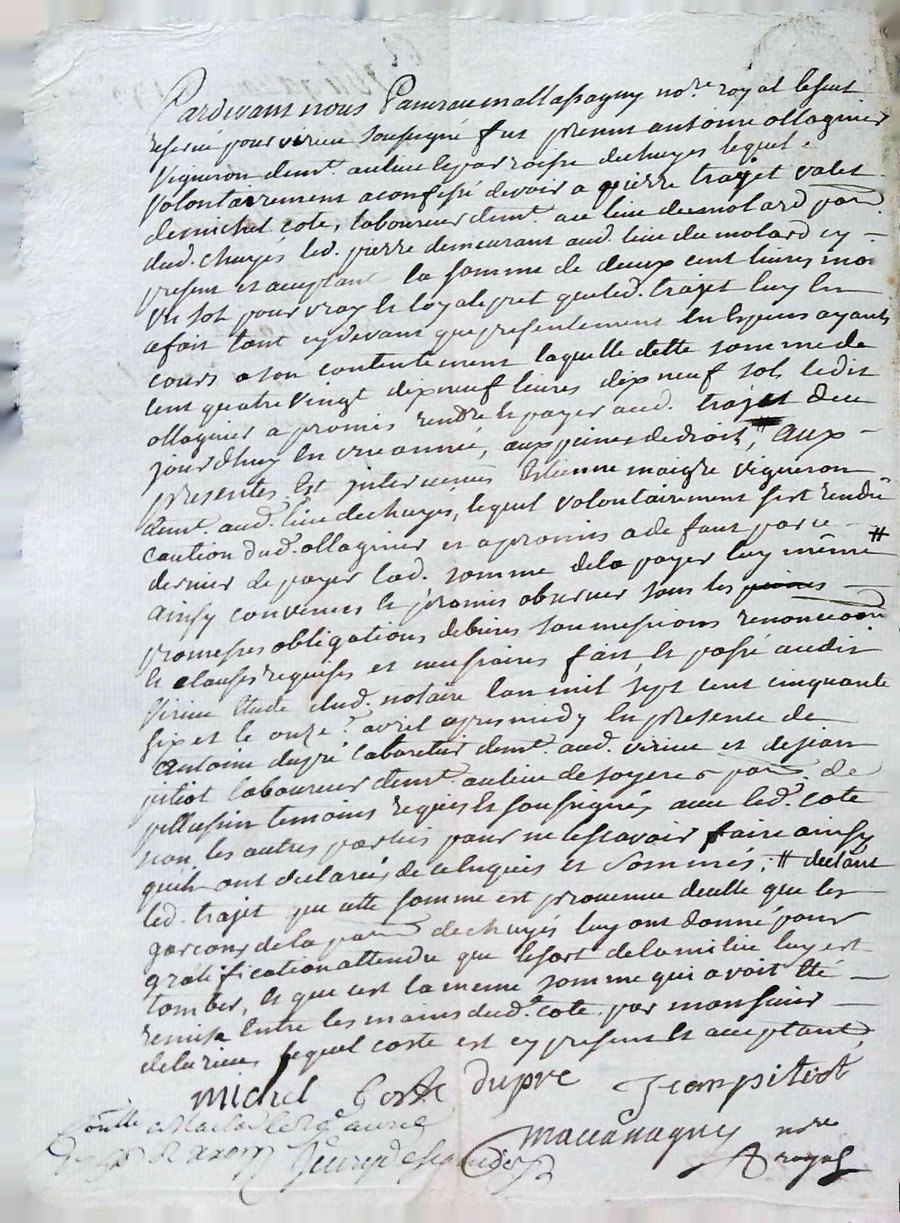 Pardevant nous Pancrace mallassagny no.re royal le seul
reservé pour virieu soussigné fut present antoine ollagnier
vigneron dem.t au lieu et parroisse de chuyes lequel
volontairement a confessé devoir a pierre trajet valet
de michel cote, laboureur dem.t au lieu de molard par.
dud. chuyés led. pierre demeurant aud. lieu du molard cy
present et acceptant la somme de deux cent livres moi
un sol pour vray et loyal pret que led. trajet luy en
a fait tant cydevant que presentement en especes ayants
cours a son contentement laquelle dette somme de
cent quatre vingt dixneuf livres dixneuf sols ledit
ollagnier a promis rendre et payer aud. trajet deu
jourdhuy en une année, aux peines de droit, aux
presentes est intervenus Estienne maigre vigneron
dem.t aud. lieu de chuyés, lequel volontairement sest rendu
caution dud. ollagnier et a promis a defaut par ce
dernier de payer lad. somme de la payer luy même #
ainsy convenus et promis observer sous les
promesses obligations de biens soumissions renonciaõn
et clauses requises et necessaires fait et passé audit
virieu Etude dud. notaire lan mil sept cent cinquante
six et le onze.e avril apres midy en presence de
antoine dupré cabaretier dem.t aud. virieu et de jean
pitiot laboureur dem.t au lieu de soyeres par. de
pellussin temoins requis et soussignés avec led. cote
non les autres parties pour ne le scavoir faire ainsy
quils ont declarés de ce enquis et sommés. # declarant
led. trajet que cette somme est provenue de celle que les
garcons de la par. de chuyés luy ont donné pour
gratification attendu que le sort de la milice luy est
tomber, et que cest la meme somme qui avoit été
remise entre les mains dud. cote par monsieur
delarieu lequel coste est cy present et acceptant
michel Coste dupré Jean pitiot
mallassagny no.re
royal